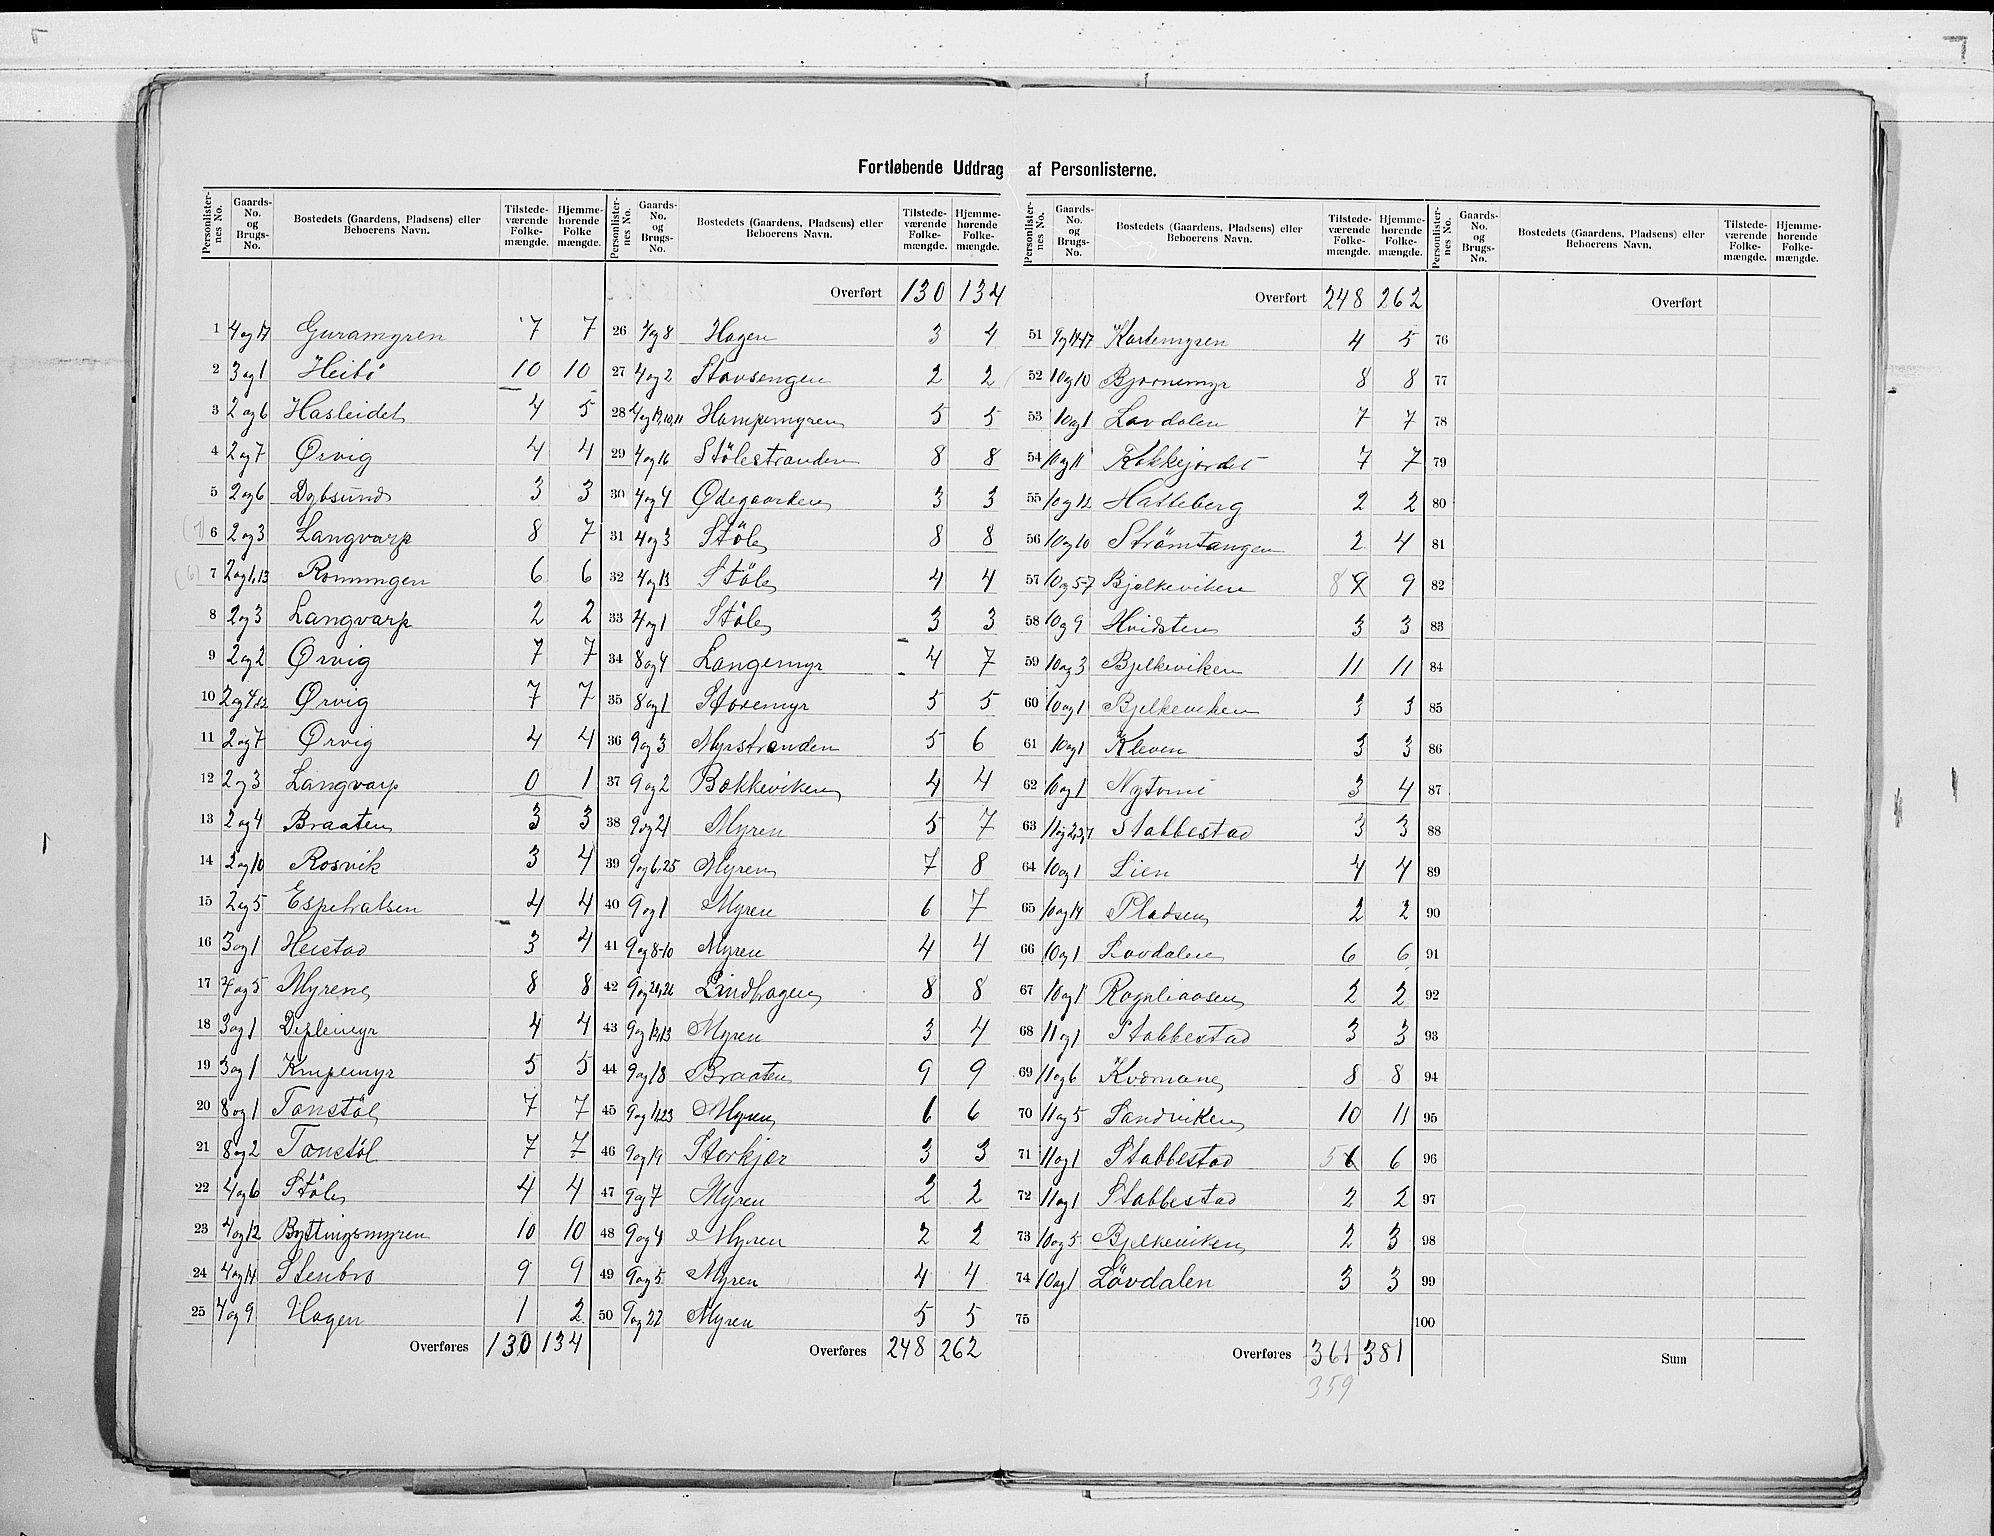 Fortløbende Uddrag af Personlisterne.
Personlisternes No. Gaards-No. og Brugs-No. Bostedets (Gaardens, Pladsens) eller Beboerens Navn. Tilstedeværende Folkemængde. Hjemmehørende Folkemængde.
1 4 og 17 Guramyren 7 7
2 3 og 1 Heibö 10 10
3 2 og 6 Hasleidet 4 5
4 2 og 7 Ørvig 4 4
5 2 og 6 Dybsund 3 3
(7) 6 2 og 3 Langvarp 8 7
(6) 7 2 og 1,13 Ronningen 6 6
8 2 og 3 Langvarp 2 2
9 2 og 2 Ørvig 7 7
10 2 og 4,12 Ørvig 7 7
11 2 og 7 Ørvig 4 4
12 2 og 3 Langvarp 0 1
13 2 og 4 Braaten 3 3
14 2 og 10 Rosvik 3 4
15 2 og 5 Espehalsen 4 4
16 3 og 1 Heistad 3 4
17 4 og 5 Myrene 8 8
18 3 og 1 Deplemyr 4 4
19 3 og 1 Knipemyr 5 5
20 8 og 1 Tonstöl 7 7
21 8 og 2 Tonstöl 7 7
22 4 og 6 Stöle 4 4
23 4 og 12 Byttingsmyren 10 10
24 4 og 14 Stenbro 9 9
25 4 og 9 Hagen 1 2
Overføres 130 134
Personlisternes No. Gaards-No. og Brugs-No. Bostedets (Gaardens, Pladsens) eller Beboerens Navn. Tilstedeværende Folkemængde. Hjemmehørende Folkemængde.
Overført 130 134
26 4 og 8 Hagen 3 4
27 4 og 2 Stavsengen 2 2
28 4 og 17,10,11 Hampemyren 5 5
29 4 og 16 Stölestranden 8 8
30 4 og 4 Ødegaarden 3 3
31 4 og 3 Stöle 8 8
32 4 og 13 Stöle 4 4
33 4 og 1 Stöle 3 3
34 8 og 4 Langemyr 4 7
35 8 og 1 Storemyr 5 5
36 9 og 3 Myrstranden 5 6
37 9 og 2 Bakkeviken 4 4
38 9 og 21 Myren 5 7
39 9 og 6,25 Myren 7 8
40 9 og 1 Myren 6 7
41 9 og 8-10 Myren 4 4
42 9 og 20,26 Lindhagen 8 8
43 9 og 12,13 Myren 3 4
44 9 og 18 Braaten 9 9
45 9 og 11,23 Myren 6 6
46 9 og 19 Storkjær 3 3
47 9 og 7 Myren 2 2
48 9 og 4 Myren 2 2
49 9 og 5 Myren 4 4
50 9 og 22 Myren 5 5
Overføres 248 262
Personlisternes No. Gaards-No. og Brugs-No. Bostedets (Gaardens, Pladsens) eller Beboerens Navn. Tilstedeværende Folkemængde. Hjemmehørende Folkemængde.
Overført 248 262
51 9 og 14,17 Kortemyren 4 5
52 10 og 10 Bjørnemyr 8 8
53 10 og 1 Lovdalen 7 7
54 10 og 11 Kokkejordet 7 7
55 10 og 12 Hatteberg 2 2
56 10 og 10 Strömtangen 2 4
57 10 og 5-7 Bjelkeviken 8 9 9
58 10 og 9 Hvidsten 3 3
59 10 og 3 Bjelkeviken 11 11
60 10 og 1 Bjelkeviken 3 3
61 10 og 1 Kleven 3 3
62 10 og 1 3 4
63 11 og 2,3,7 Stabbestad 3 3
64 10 og 1 Lien 4 4
65 10 og 14 Pladsen 2 2
66 10 og 1 Lovdalen 6 6
67 10 og 1 Rognliaasen 2 2
68 11 og 1 Stabbestad 3 3
69 11 og 6 Kvamane 8 8
70 11 og 5 Sandviken 10 11
71 11 og 1 Stabbestad 5 6 6
72 11 og 1 Stabbestad 2 2
73 10 og 5 Bjelkeviken 2 3
74 10 og 1 Lövdalen 3 3
75
Overføres 361 381
359
Personlisternes No. Gaards-No. og Brugs-No. Bostedets (Gaardens, Pladsens) eller Beboerens Navn. Tilstedeværende Folkemængde. Hjemmehørende Folkemængde.
Overført
76
77
78
79
80
81
82
83
84
85
86
87
88
89
90
91
92
93
94
95
96
97
98
99
100
Sum